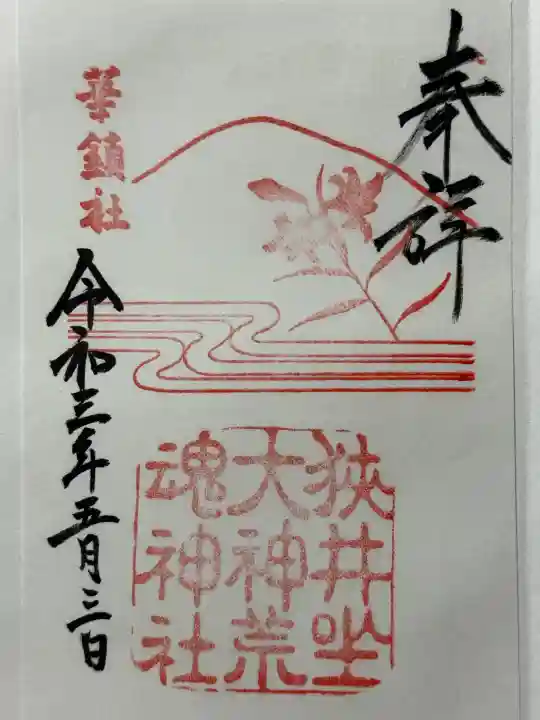 奉拝
狭井坐
大神荒
魂神社
華鎮社
令和三年五月三日